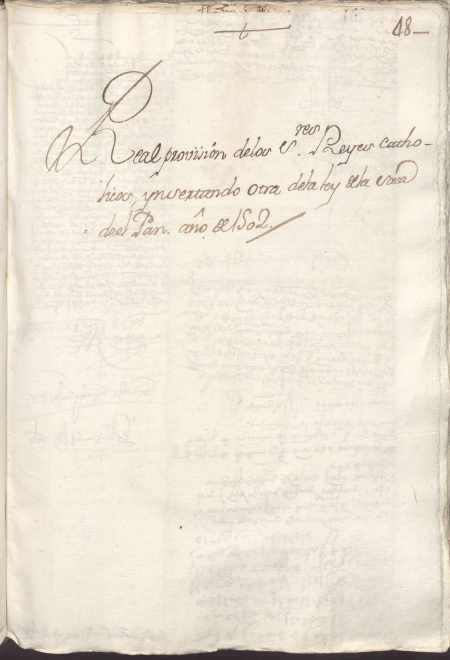 48
Real provisión de los S.res Reyes Catho-
licos, ynsertando otra de la ley de la
de el Pan. año de 1502.